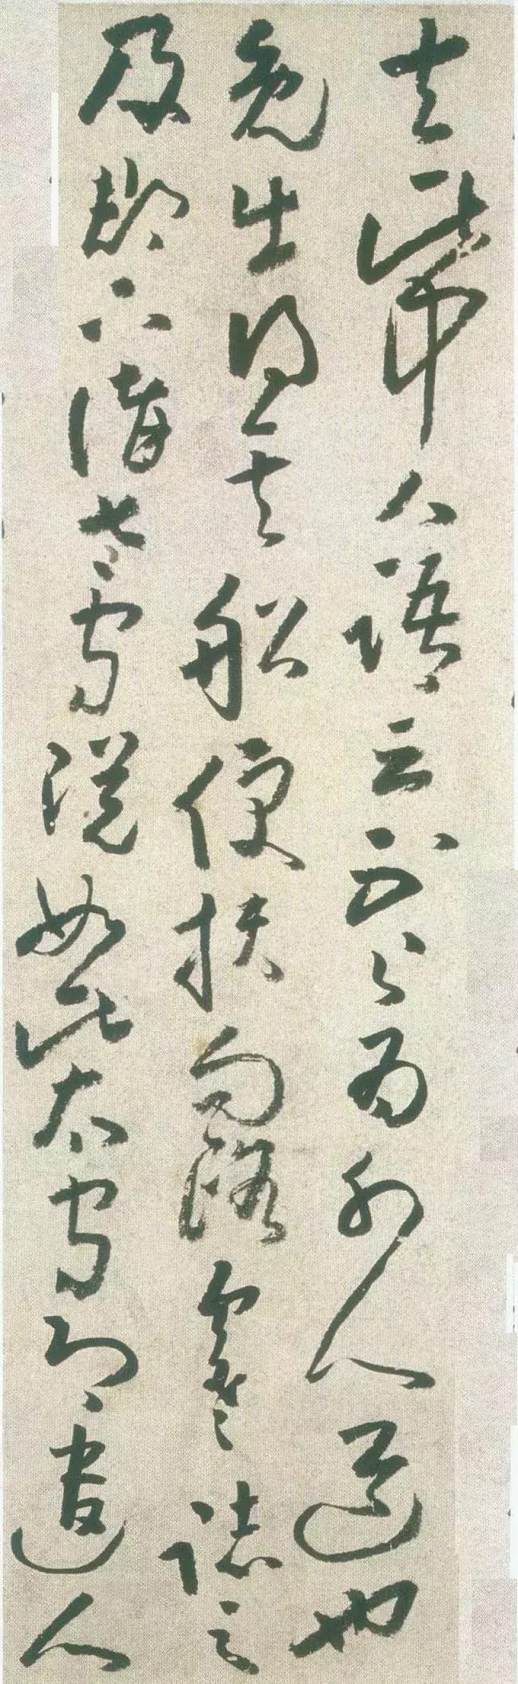 去此中人語云不足爲外人道也
既出得其船便扶向路處處誌之
及郡下詣太守說如此太守即遣人